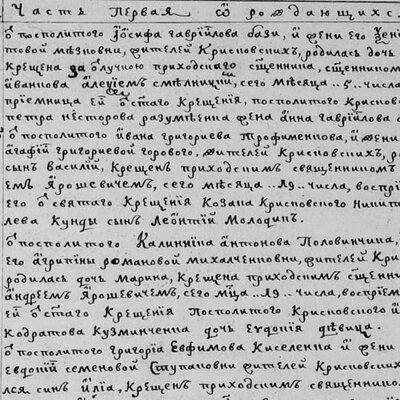 Часть Первая ѿ рождающихс
ѿ посполитого Іѡсифа гаврійлова бази, й жени его Ѯені
товой мѣзновни, жителей Крисповских, родилась дочь
крещена за ѿлучною приходскаго сщенника, сщенником
йваннова алеѯіемъ смѣлницкій, сего мѣсяца ..5.. числа
прїемница ей ѿ стаго Крещенія, посполитого Крисповс
петра несторова разумѣенка жена анна гаврійлова
ѿ посполитого йвана григориева Трофименкова, й жени
агафій григориевой горового, жителей Крисповских, р
сынъ василій, Крещенъ приходскимъ священником
емъ Ярошевичемъ, сего мѣсяца ..19.. числа, воспрі
его ѿ святаго Крещенія Козака Крисповского Никит
лева Кунды сынъ Леонтій Молодикъ.
ѿ посполитого Калинника антонова Половинчика,
его агрипини романовой михалченковни, жителей Кри
родилась дочь марина, Крещена приходскимъ сщенни
андреемъ Ярошевичемъ, сего мца ..19.. числа, воспрїем
ей ѿ стаго Крещенія Посполитого Крисповского й
кодратова Кузминченка дочь Евдокія дѣвица.
ѿ посполитого григоріа Евфимова Киселенка й жени
Евдокій семеновой Ступаковни жителей Крисповских
лся синъ йліа, Крещенъ приходскимъ священнико